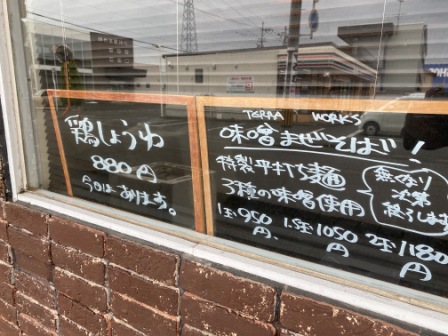 鶏しょうゆ
880円
今日はあります。
TERRA WORKS
味噌まぜそば!
特製平打ち麺
3種の味噌使用
無くなり
次第
終了します
1玉950円 1.5玉1050円 2玉1180円